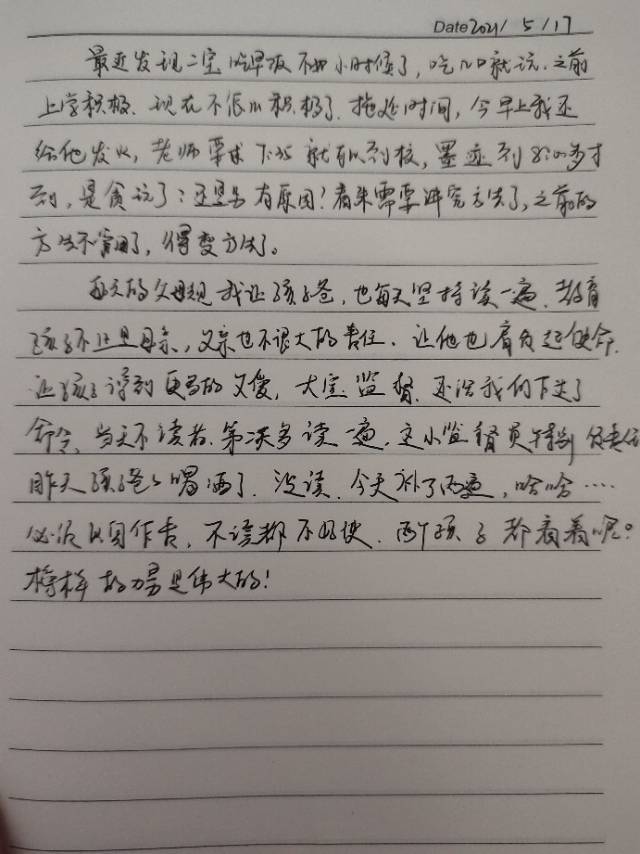 Date 2021/5/17
最近发现二宝吃早饭不如小时候了，吃几口就玩.之前
上学积极.现在不很积极了.拖延时间，今早上我还
给他发火，老师要求7:35就可以到校，墨迹到8:00多才
到，是贪玩了？还是另有原因？看来需要讲究方法了，之前的
方法不管用了，得变方法了。
每天的父母规我让孩子爸，也每天坚持读一遍.教育
孩子不止是母亲，父亲也有很大的责任.让他也肩负起使命.
让孩子得到更多的父爱，大宝监督.还给我们下达了
命令，当天不读者.第二天多读一遍.这小监督员特别负责任
昨天孩子爸爸喝酒了.没读.今天补了两遍，哈哈……
必须以身作者，不读都不好使.两个孩子都看着呢？
榜样的力量是伟大的！